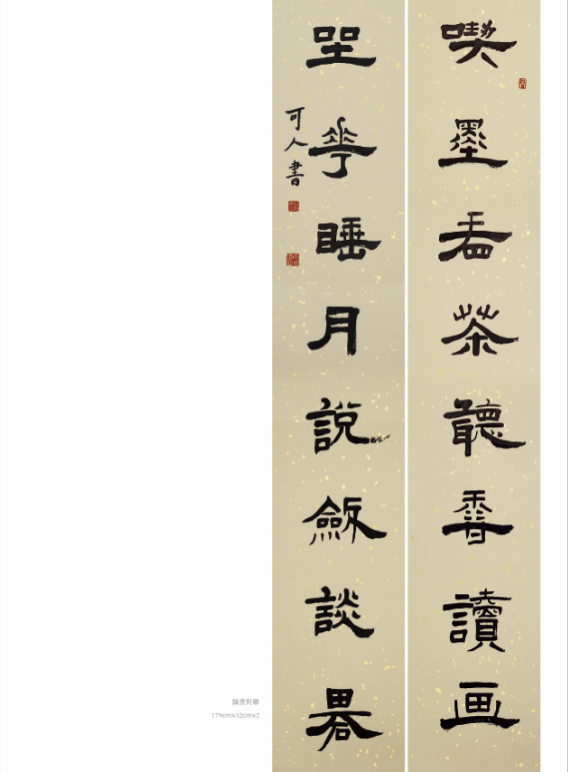 喫墨看茶聽香讀画
坐花睡月說劔談畧
可人書
隸書對聯
179cmx32cmx2